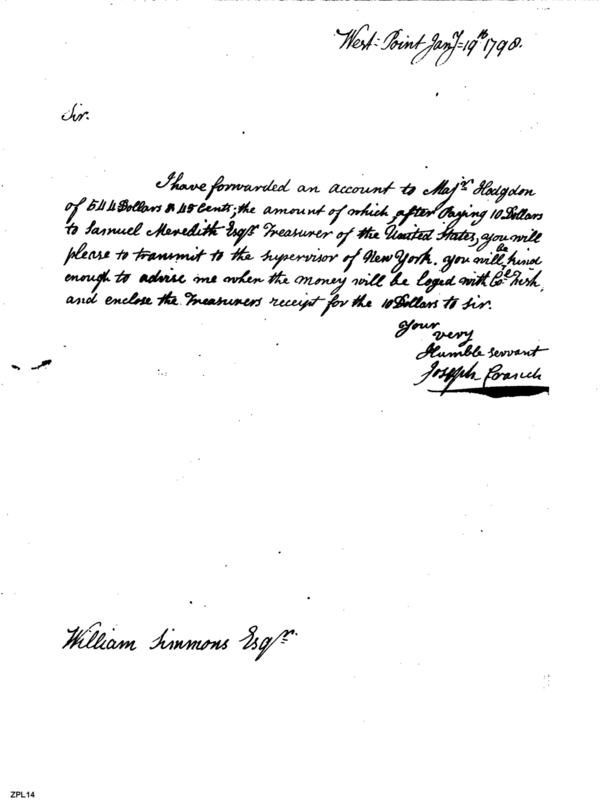 West-Point Jany 19th 1798.
Sir.
I have forwarded an account to Majr. Hodgdon
of 544 Dollars & 45 Cents; the amount of which after Paying 10 Dollars
to Samuel Meredith Esqr. Treasurer of the United States, you will
please to transmit to the supervisor of New York. you will be kind
enough to advise me when the money will be loged with Col. Fish,
and enclose the Treasurers receipt for the 10 Dollars to sir.
Your
very
Humble servant
Joseph Cranch
William Simmons Esqr.
ZPL14